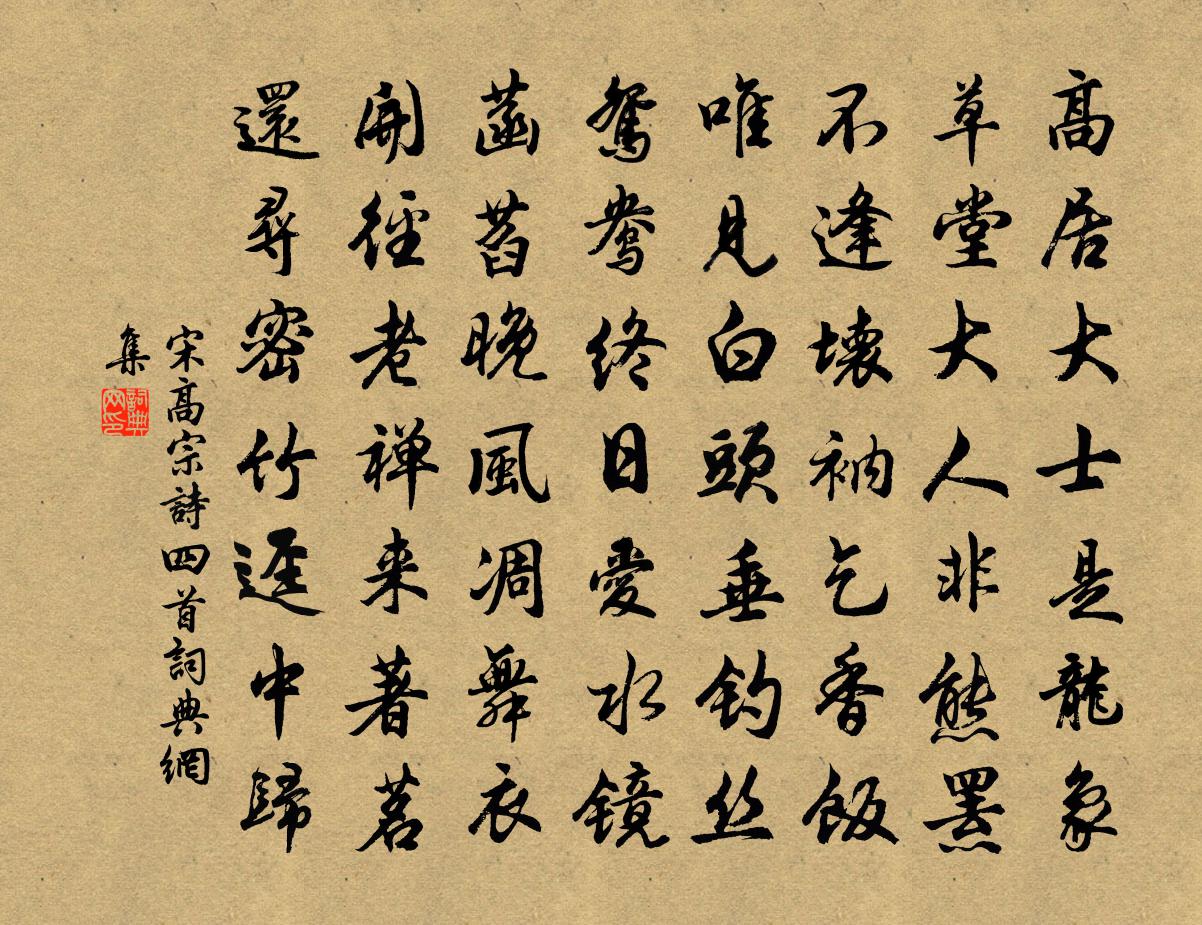 高居大士是龍象
草堂大人非熊羆
不逢壞衲乞香飯
唯見白頭垂釣丝
鴛鴦終日愛水镜
菡萏晚風凋舞衣
開徑老禅来著茗
還尋密竹逕中歸
宋高宗詩四首詞典網
集
詞典網印